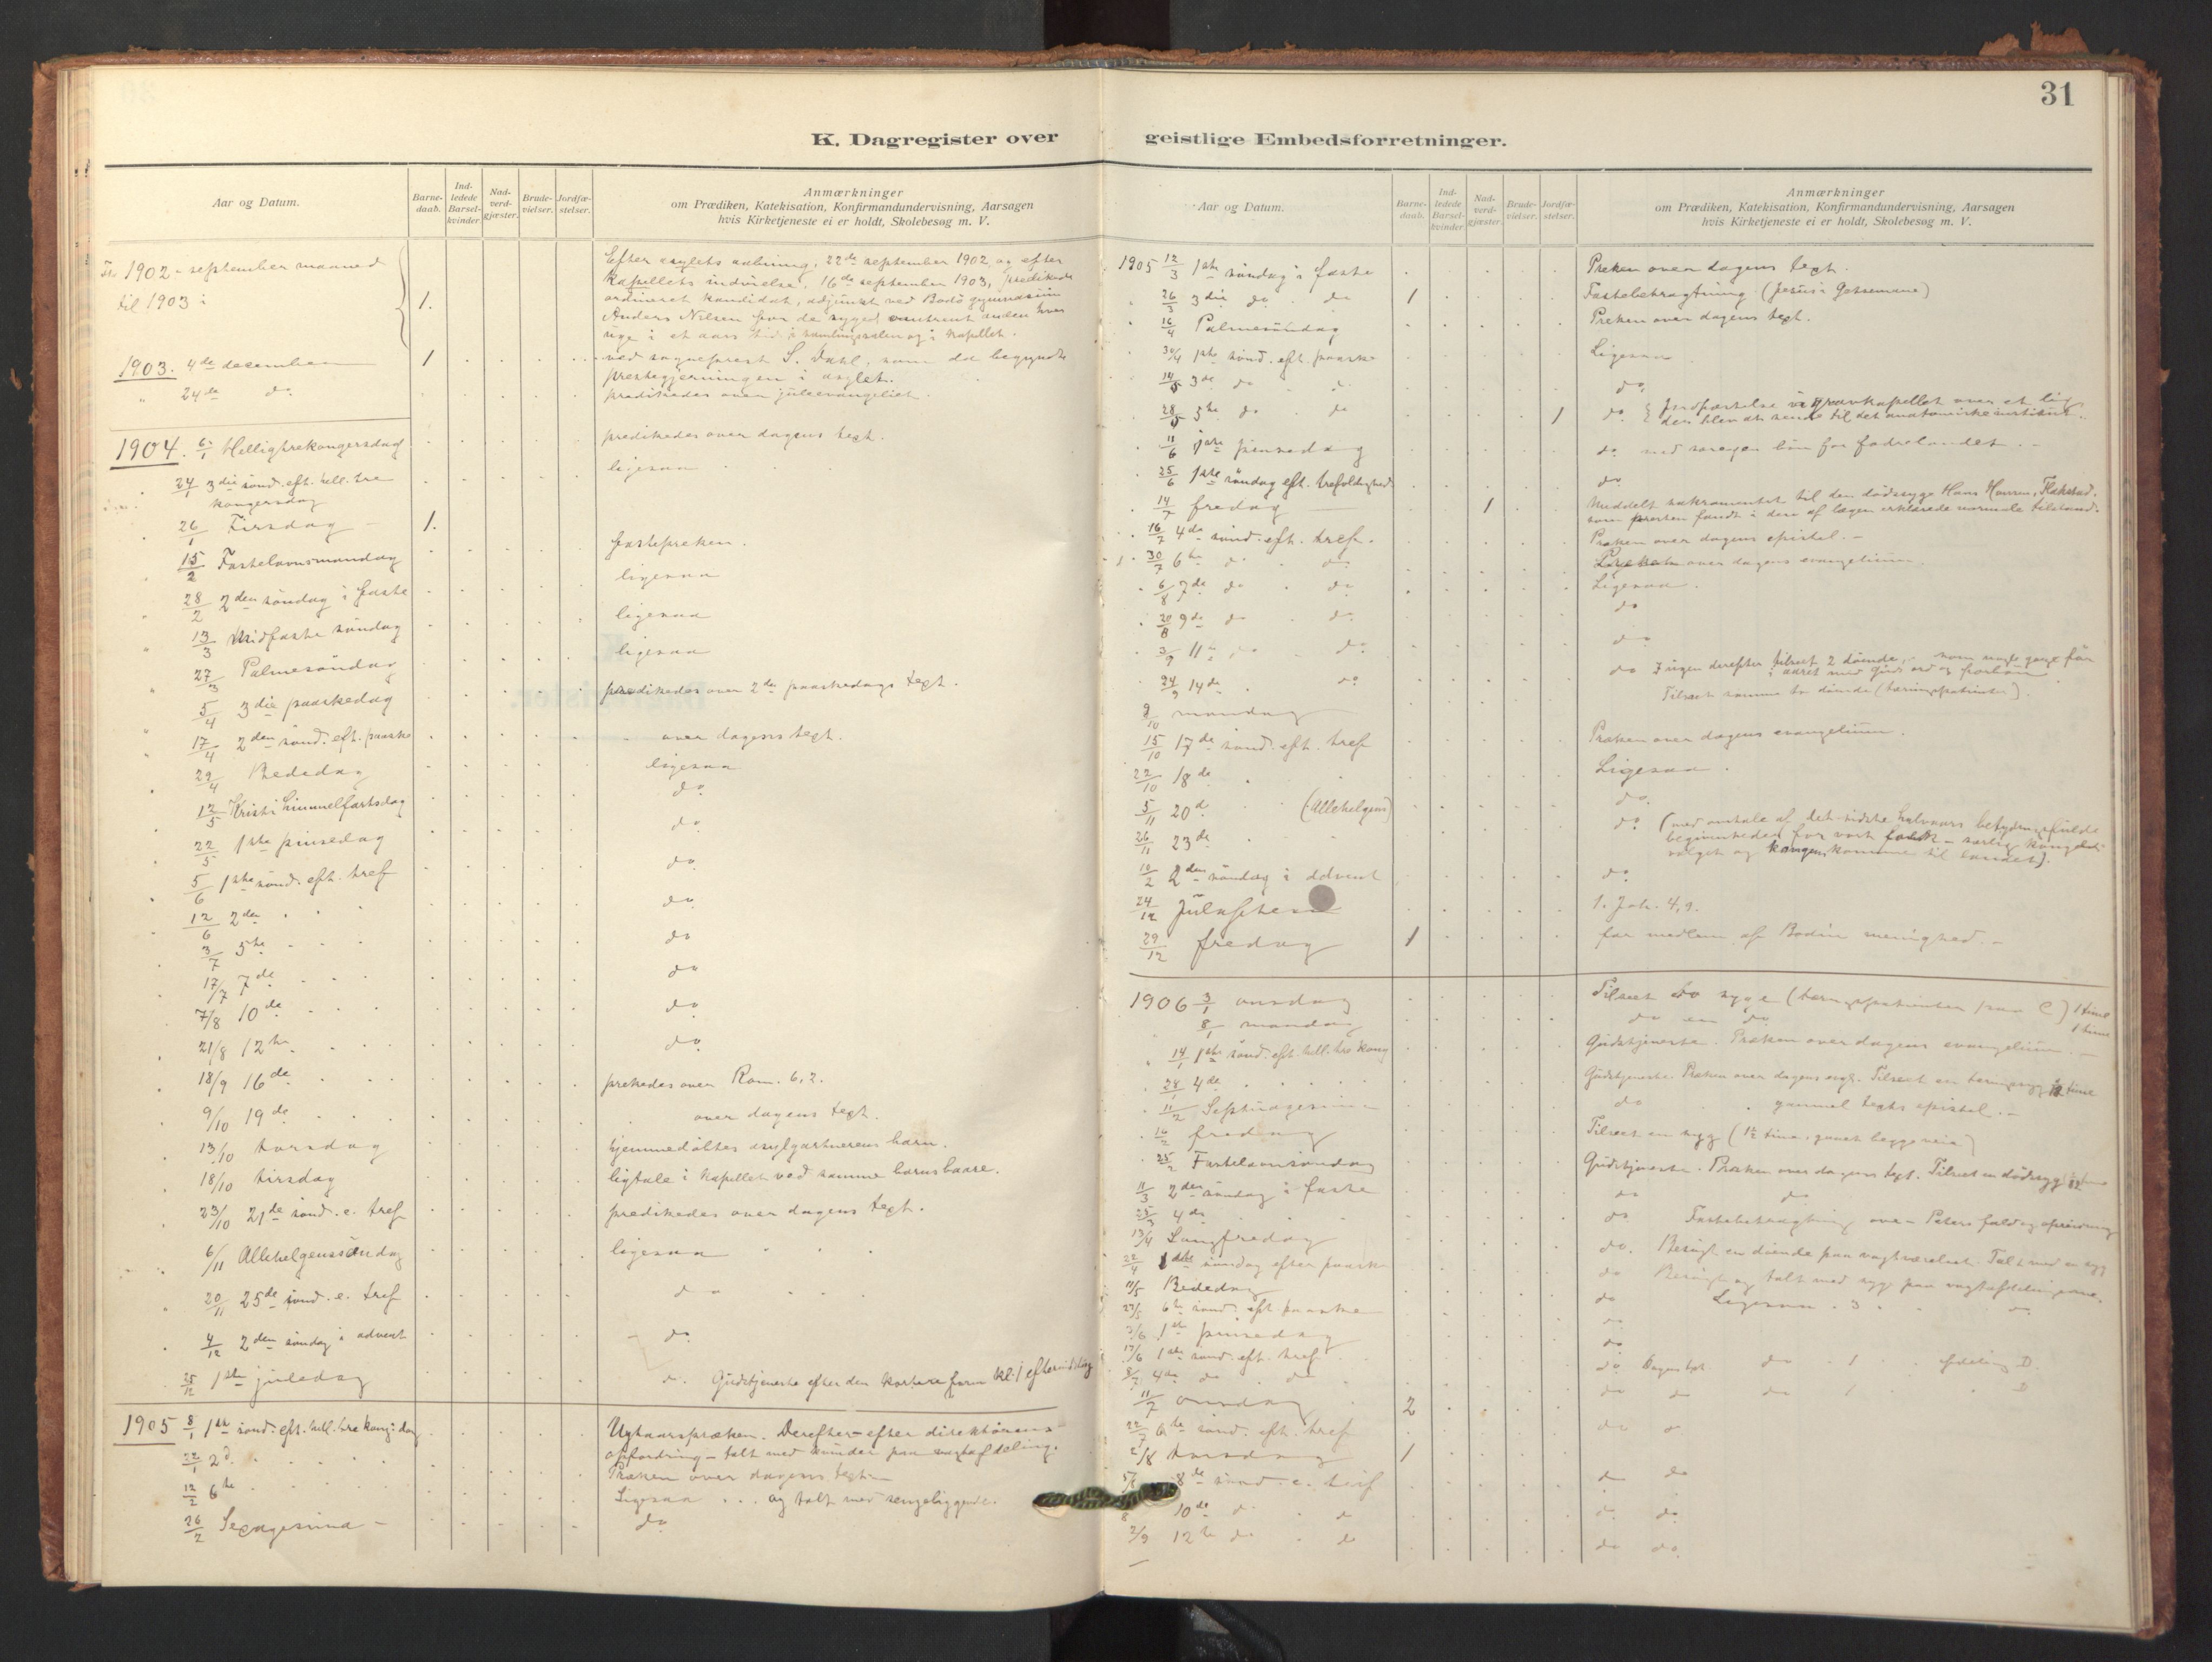 31
K. Dagregister over geistlige Embedsforretninger.
Aar og Datum.
Barne-daab.
Ind-ledede Barsel-kvinder.
Nad-verd-gjæster.
Brude-vielser.
Jordfæ-stelser.
Anmærkninger
om Prædiken, Katekisation, Konfirmandundervisning, Aarsagen
hvis Kirketjeneste ei er holdt, Skolebesøg m. V.
1902 - september maaned
til 1903 i
1.
Efter asylets aabning, 22de september 1902 og efter
kapellets indvielse, 16de september 1903, prædikede
ordineret kandidat, adjunkt ved Bodö gymnasium
Anders Nilsen for de syge omtrent anden hver
uge i et aars tid i samlingssalen og i kapellet.
1903. 4de december 1 ved sogneprest S. Dahl, som da begyndte
prestegjerningen i asylet.
" 24de do prædikedes over juleevangeliet.
1904. 6/1 Helligtrekongersdag prædikedes over dagens text.
24/1 3die sönd. eft. hell. tre kongersdag ligesaa
26/1 Tirsdag 1.
15/2 Fastelavnsmandag fastepreken.
28/2 2den söndag i faste ligesaa
13/3 Midfaste söndag ligesaa
27/3 Palmesöndag ligesaa
5/4 3die paaskedag prædikedes over 2den paaskedags text.
17/4 2den sönd. eft. paaske over dagens text.
29/4 Bededag ligesaa
12/5 Kristi himmelfartsdag do.
22/5 1ste pinsedag do.
5/6 1ste sönd. eft. tref do.
12/6 2den do.
3/7 5te do
17/7 7de do
7/8 10de do
21/8 12te do
18/9 16de prekedes over Rom. 6,2.
9/10 19de over dagens text.
13/10 torsdag hjemmedöbtes asylgartnerens barn.
18/10 tirsdag ligtale i kapellet ved samme barns baare.
23/10 21de sönd. e. tref prædikedes over dagens text.
6/11 Allehelgenssöndag ligesaa
20/11 25de sönd. e. tref do
4/12 2den söndag i advent do.
25/12 1ste juledag do. Gudstjeneste efter den kortere form kl. 1 eftermiddag
1905 8/1 1ste sönd. eft. hell. tre kong. dag Nytaarspræken. Derefter - efter direktörens
opfordring - talt med kvinder paa vagtafdeling.
22/1 2d. Præken over dagens text
12/2 6te Ligesaa og talt med sengeliggende.
26/2 Sexagesima do
Aar og Datum.
Barne-daab.
Ind-ledede Barsel-kvinder.
Nad-verd-gjæster.
Brude-vielser.
Jordfæ-stelser.
Anmærkninger
om Prædiken, Katekisation, Konfirmandundervisning, Aarsagen
hvis Kirketjeneste ei er holdt, Skolebesøg m. V.
1905 12/3 1ste söndag i faste Preken over dagens text.
26/3 3die do do 1 Fastebetragtning (Jesus i Getsemane)
16/4 Palmesöndag Preken over dagens text.
30/4 1ste sönd. eft. paaske Ligesaa
14/5 3de do do.
28/5 5te do do 1 do. Jordfæstelse i gravkapellet over et lig
der blev at sende til det anatomiske institut.
11/6 1ste pinsedag do. med særegen bön for fædrelandet.
25/6 1ste söndag eft. trefoldighed do
14/7 fredag 1 Meddelt sakramentet til den dödssyge Hans Hansen, Flakstad.
som presten fandt i den af lægen erklærede normale tilstand.
16/7 4de sönd. eft. tref. Præken over dagens epistel.
30/7 6te do do over dagens evangelium.
6/8 7de do do Ligesaa.
20/8 9de do do do
3/9 11te do do. do
24/9 14de do. do I ugen derefter tilseet 2 döende, som nogle gange för
i aaret med Guds ord og forbön
9/10 mandag Tilseet samme to döende (tæringspatienter).
15/10 17de sönd. eft. tref Præken over dagens evangelium.
22/10 18de Ligesaa.
5/11 20d (Allehelgen) do.
26/11 23de do. (med omtale af det sidste halvaars betydningsfulde
begivenheder for vort folk - særlig kongevalget og kongens komme til landet).
10/2 2den söndag i advent do.
24/12 Juleaften 1. Joh. 4,9.
29/12 fredag 1 for medlem af Bodin menighed.
1906 3/1 onsdag Tilseet to syge (tæringspatienter paa C) 1 time
8/1 mandag do en do 1 time
14/1 1ste sönd. eft. hell. tre kong Gudstjeneste. Præken over dagens evangelium.
28/1 4de Gudstjeneste. Præken over dagens evgl. Tilseet en tæringssyg 1/2 time
11/2 Septuagesima do gammel texts epistel.
16/2 fredag Tilseet en syg (1 1/2 time, gaaet begge veie)
25/2 Fastelavnssöndag Gudstjeneste. Præken over dagens text. Tilseet en dödssyg
11/3 2den söndag i faste do do
25/3 4de do Fastebetragtning over Peters fald og opreisning
13/4 Langfredag do. Besögt en döende paa vagtværelset. Talt med en syg
22/4 1ste söndag efter paaske do Besögt og talt med syge paa vagtafdelingerne.
11/5 Bededag do Ligesaa. 3 do.
27/5 6te sönd. eft paaske do
3/6 1ste pinsedag do
17/6 1ste sönd. eft. tref do Dagens txt. do 1 afdeling D.
8/7 4de do do do do do 1 D
11/7 onsdag 2
22/7 6te sönd. eft. tref do
2/8 torsdag 1
5/ 8de sönd. e. tref do do
8 10de do do do do
2/9 12te do do do do.